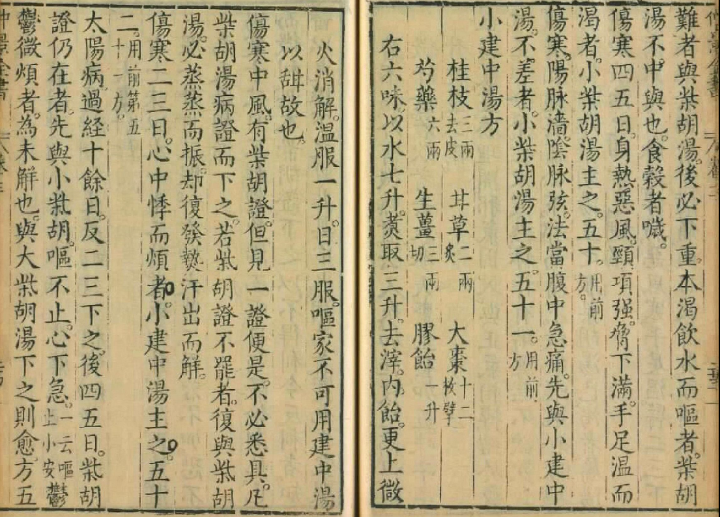 難者與柴胡湯後必下重。本渴飲水而嘔者。柴胡
湯不中與也。食穀者噦。
傷寒四五日。身熱惡風。頸項强。脅下滿。手足温而
渴者。小柴胡湯主之。五十。用前方。
傷寒陽脉濇。陰脉弦。法當腹中急痛。先與小建中
湯。不差者。小柴胡湯主之。五十一。用前方
小建中湯方
桂枝三兩去皮 甘草二兩炙 大棗十二枚擘
芍藥六兩 生薑三兩切 膠飴一升
右六味。以水七升。煑取三升。去滓。内飴。更上微
火消解。温服一升。日三服。嘔家不可用建中湯
以甜故也。
傷寒中風。有柴胡證。但見一證便是。不必悉具。凡
柴胡湯病證而下之。若柴胡證不罷者。復與柴胡
湯。必蒸蒸而振。却復發熱。汗出而解。
傷寒二三日。心中悸而煩者。小建中湯主之。五十
二。用前第五十一方。
太陽病。過経十餘日。反二三下之。後四五日。柴胡
證仍在者。先與小柴胡。嘔不止。心下急。一云嘔止小安鬱
鬱微煩者。為未解也。與大柴胡湯下之則愈。方五